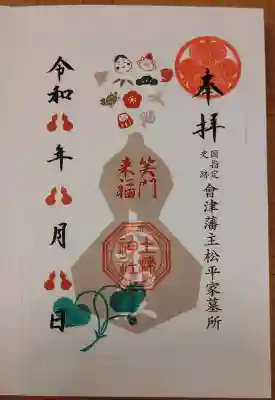 奉拝
国指定
史跡
會津藩主松平家墓所
笑門
来福
土津
神社
令和 年 月 日